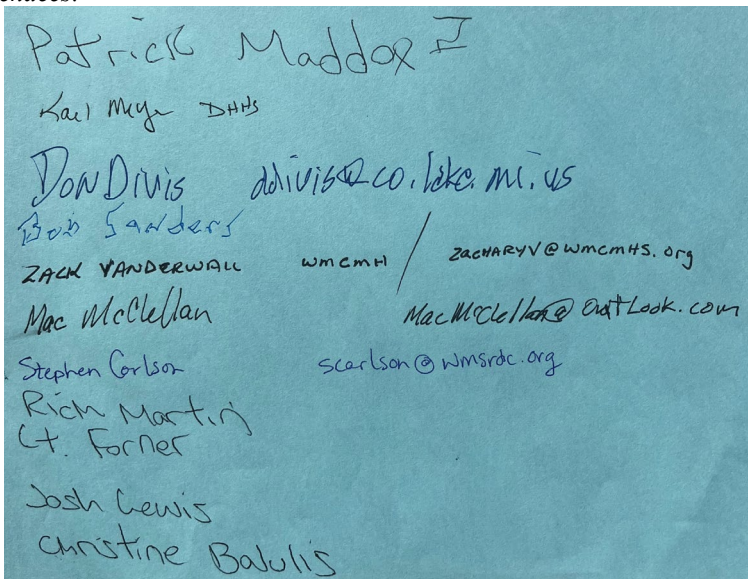 Patrick Maddox II
Karl Meye DHHS
Don Divis ddivis@co.lake.mi.us
Bob Sanders
ZACK VANDERWALL WMCMH / ZACHARYV@WMCMHS.org
Mac McClellan MacMcClellan@OutLook.com
Stephen Carlson scarlson@wmsrdc.org
Rich Martin
Lt. Forner
Josh Lewis
Christine Balulis